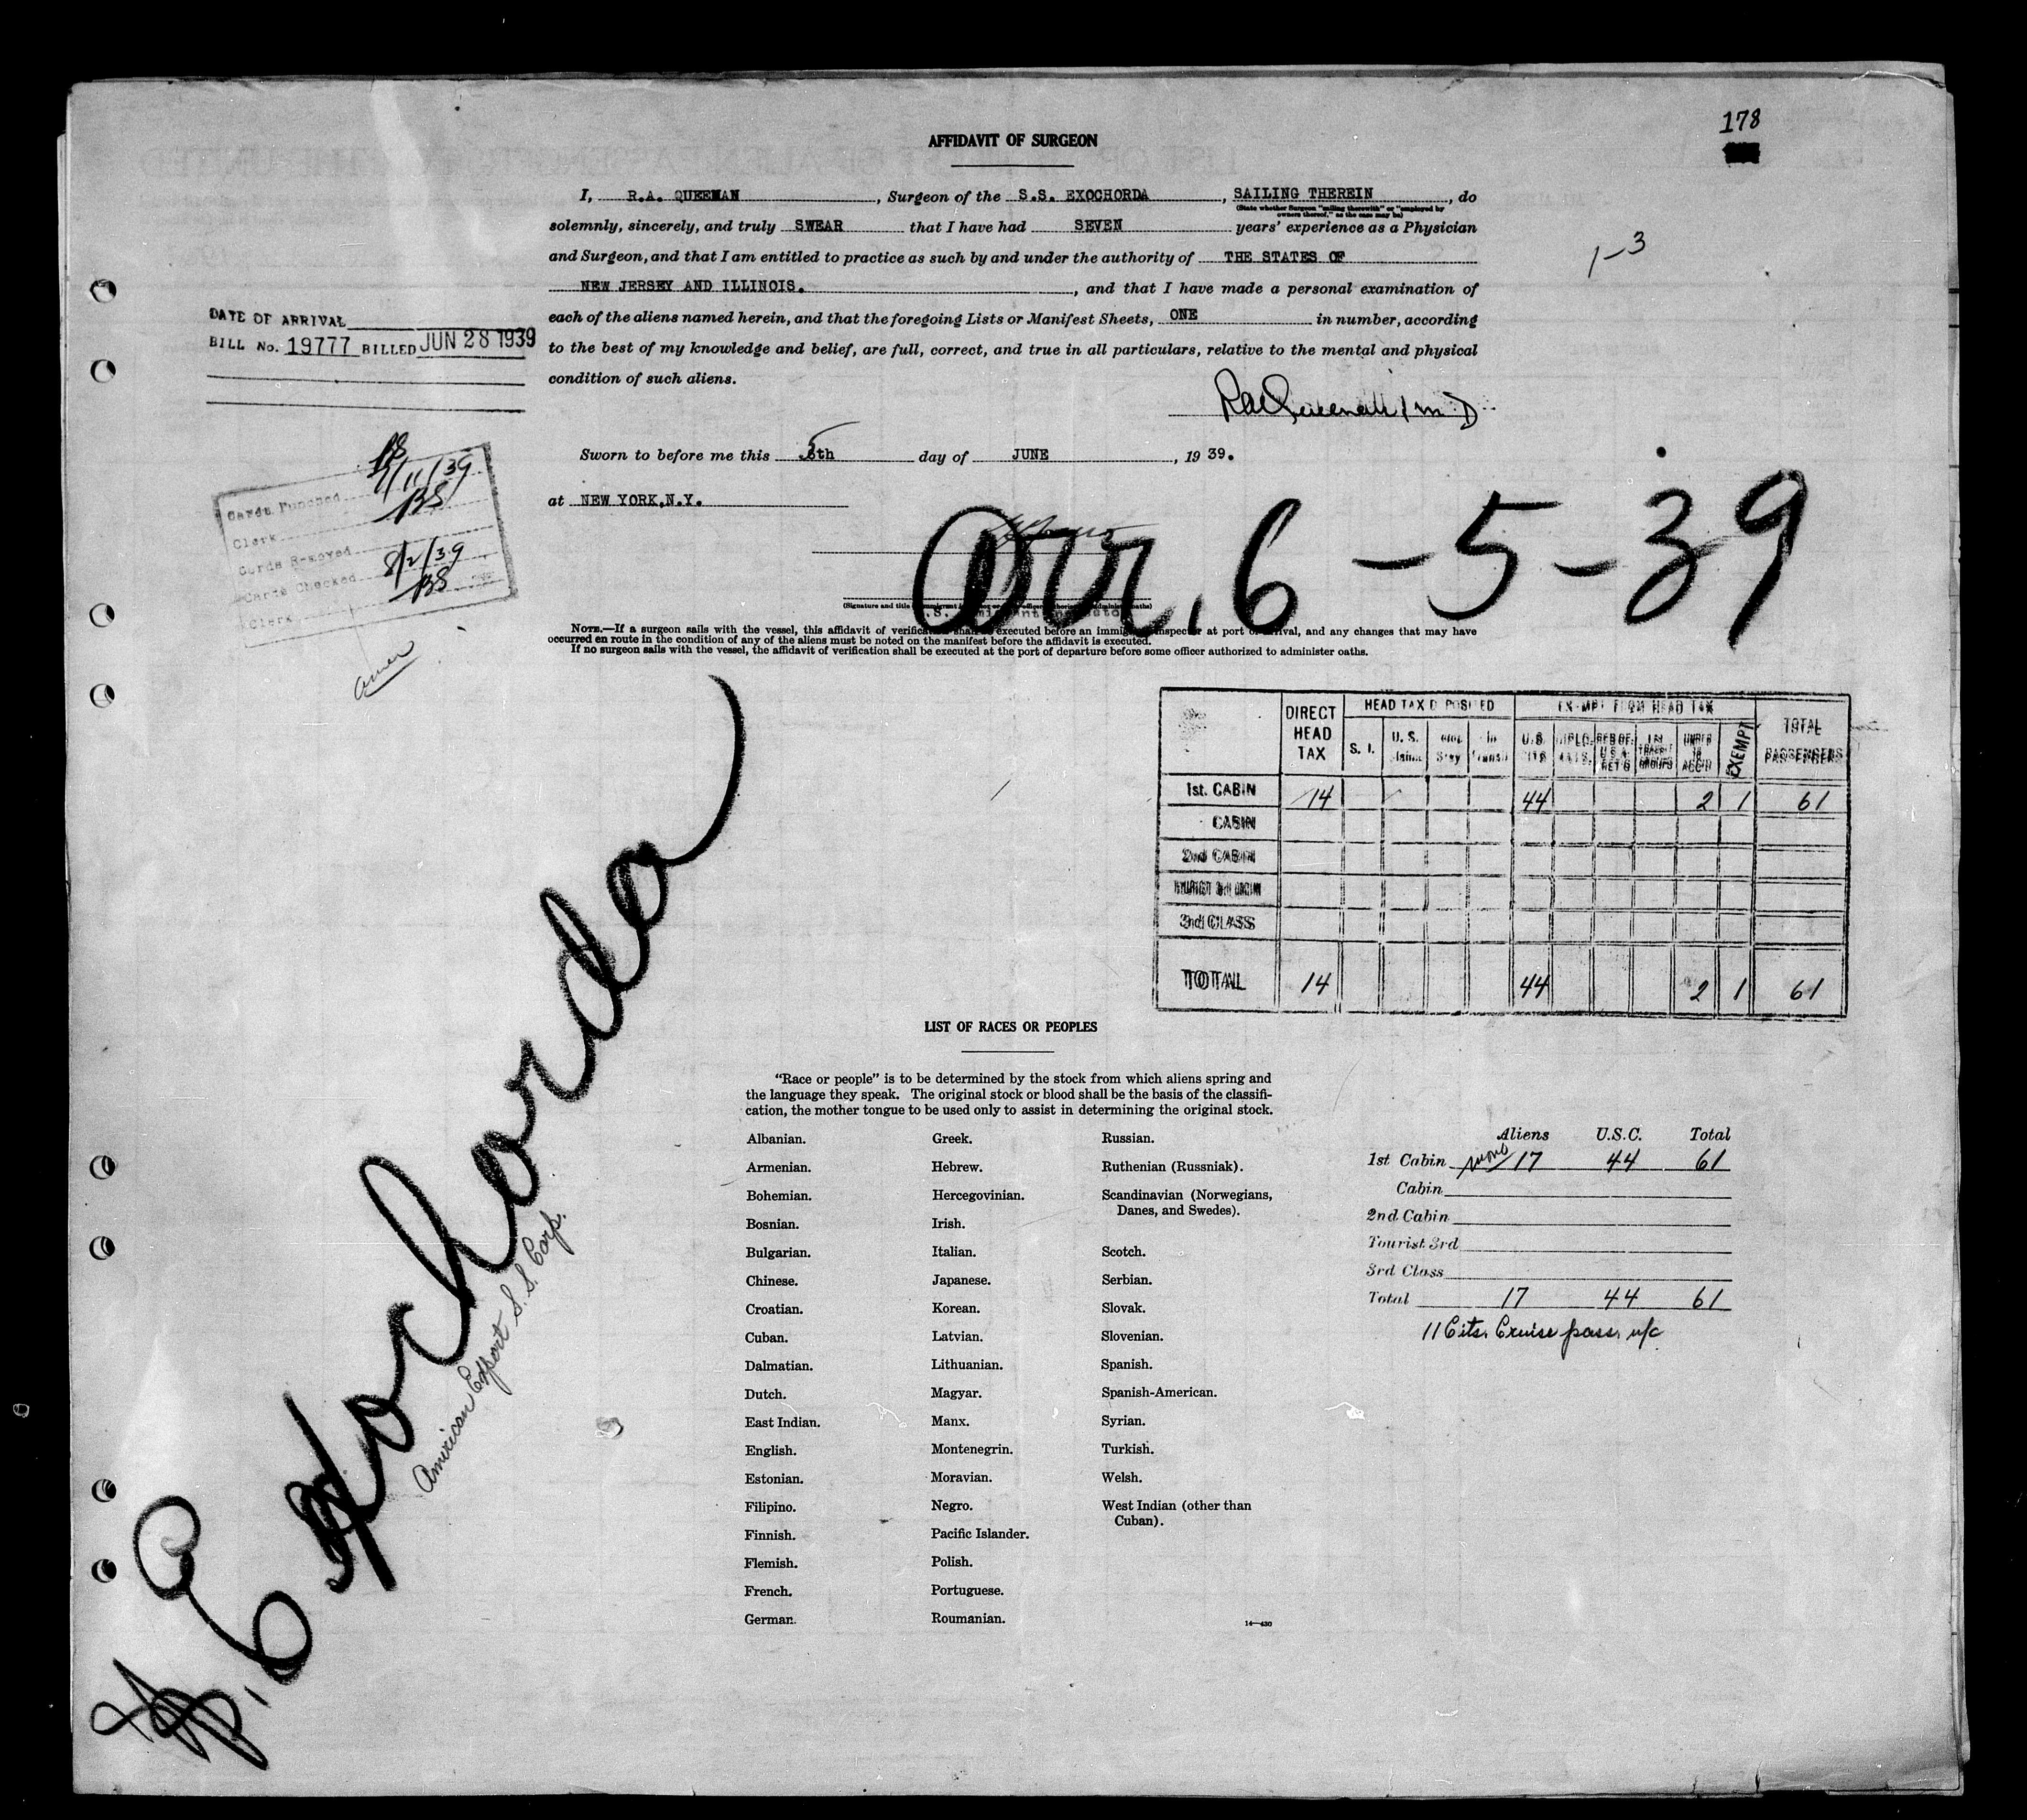 178
AFFIDAVIT OF SURGEON
I, R.A. QUEENAN, Surgeon of the S.S. EXOCHORDA, SAILING THEREIN, do
(State whether Surgeon "sailing therewith" or "employed by
owners thereof," as the case may be)
solemnly, sincerely, and truly SWEAR that I have had SEVEN years' experience as a Physician
and Surgeon, and that I am entitled to practice as such by and under the authority of THE STATES OF
NEW JERSEY AND ILLINOIS., and that I have made a personal examination of
each of the aliens named herein, and that the foregoing Lists or Manifest Sheets, ONE in number, according
to the best of my knowledge and belief, are full, correct, and true in all particulars, relative to the mental and physical
condition of such aliens.
1-3
DATE OF ARRIVAL
BILL No. 19777 BILLED JUN 28 1939
RAQueenan M D
Sworn to before me this 5th day of JUNE, 19 39.
at NEW YORK, N.Y.
Arr. 6-5-39
Cards Punched 7/11/39
Clerk BS
Cards Removed
Cards Checked 8/2/39
Clerk BS
amer
NOTE.—If a surgeon sails with the vessel, this affidavit of verification shall be executed before an immigrant inspector at port of arrival, and any changes that may have
occurred en route in the condition of any of the aliens must be noted on the manifest before the affidavit is executed.
If no surgeon sails with the vessel, the affidavit of verification shall be executed at the port of departure before some officer authorized to administer oaths.
DIRECT HEAD TAX HEAD TAX D POSITED EXEMPT FROM HEAD TAX TOTAL PASSENGERS
S. I. U. S. In Transit U.S. CITS UNDER 16 ACC'D EXEMPT
1st. CABIN 14 44 2 1 61
CABIN
2nd CABIN
TOURIST 3rd CABIN
3rd CLASS
TOTAL 14 44 2 1 61
S.S. Exochorda
American Export S.S. Corp.
LIST OF RACES OR PEOPLES
"Race or people" is to be determined by the stock from which aliens spring and
the language they speak. The original stock or blood shall be the basis of the classifi-
cation, the mother tongue to be used only to assist in determining the original stock.
Albanian.
Armenian.
Bohemian.
Bosnian.
Bulgarian.
Chinese.
Croatian.
Cuban.
Dalmatian.
Dutch.
East Indian.
English.
Estonian.
Filipino.
Finnish.
Flemish.
French.
German.
Greek.
Hebrew.
Hercegovinian.
Irish.
Italian.
Japanese.
Korean.
Latvian.
Lithuanian.
Magyar.
Manx.
Montenegrin.
Moravian.
Negro.
Pacific Islander.
Polish.
Portuguese.
Roumanian.
Russian.
Ruthenian (Russniak).
Scandinavian (Norwegians,
Danes, and Swedes).
Scotch.
Serbian.
Slovak.
Slovenian.
Spanish.
Spanish-American.
Syrian.
Turkish.
Welsh.
West Indian (other than
Cuban).
14—430
Aliens U.S.C. Total
1st Cabin 17 44 61
Cabin
2nd Cabin
Tourist 3rd
3rd Class
Total 17 44 61
11 Cits. Cruise pass. n/c